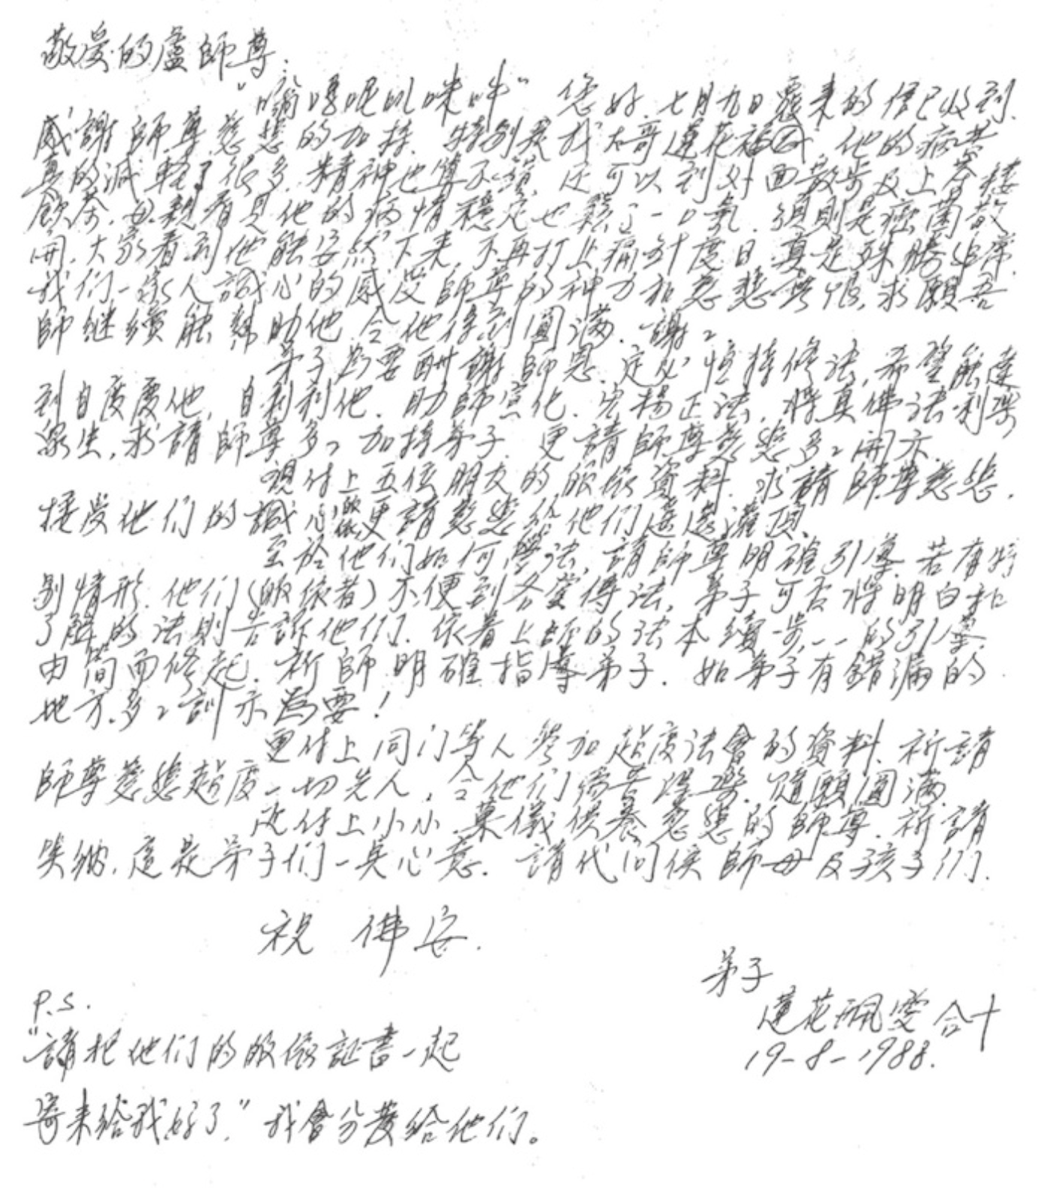 敬愛的盧師尊:
"嗡嘛呢叭咪吽" 您好 七月九日覆來的信已收到.
感謝師尊慈悲的加持. 特別是我大哥蓮花福 他的病苦
真的減輕了很多. 精神也算不錯, 还可以到对面散步及上茶樓
飲茶. 母親看見他的病情穩定也鬆了一口氣. 須則是癌菌散
開. 大家看到他能安然下來. 不再打上痛針度日 真是殊勝非常.
我们一家人誠心的感受師尊的神力和慈悲無限. 求願吾
師继續能幫助他 令他得到圓满. 謝々
弟子為要酬謝師恩. 定必恒持修法, 希望能達
到自度度他, 自利利他. 助師宣化. 宏揚正法. 將真佛法利樂
眾生. 求請師尊多々加持弟子. 更請師尊慈悲多々開示.
現付上五位朋友的皈依資料. 求請師尊慈悲.
接受他们的誠心皈依更請慈悲給他们遥遠灌頂.
至於他们如何學法, 請師尊明確引導. 若有特
别情形. 他们(皈依者)不便到分堂傳法, 弟子可否將明白和
了解的法則告訴他们. 依着上師的法本續步一一的引導.
由简而修起. 祈師明確指導弟子. 如弟子有錯漏的
地方. 多々訓示為要!
更付上同门等人參加超度法會的資料. 祈請
師尊慈悲超度一切先人, 令他们離苦得樂. 隨願圓满.
还付上小小菓儀供養慈悲的師尊. 祈請
笑納. 這是弟子们一点心意. 請代问侯師母及孩子们.
祝 佛安.
弟子
蓮花珮雯合十
19-8-1988.
P.S.
"請把他们的皈依証書一起
寄来給我好了." 我會分發給他们。